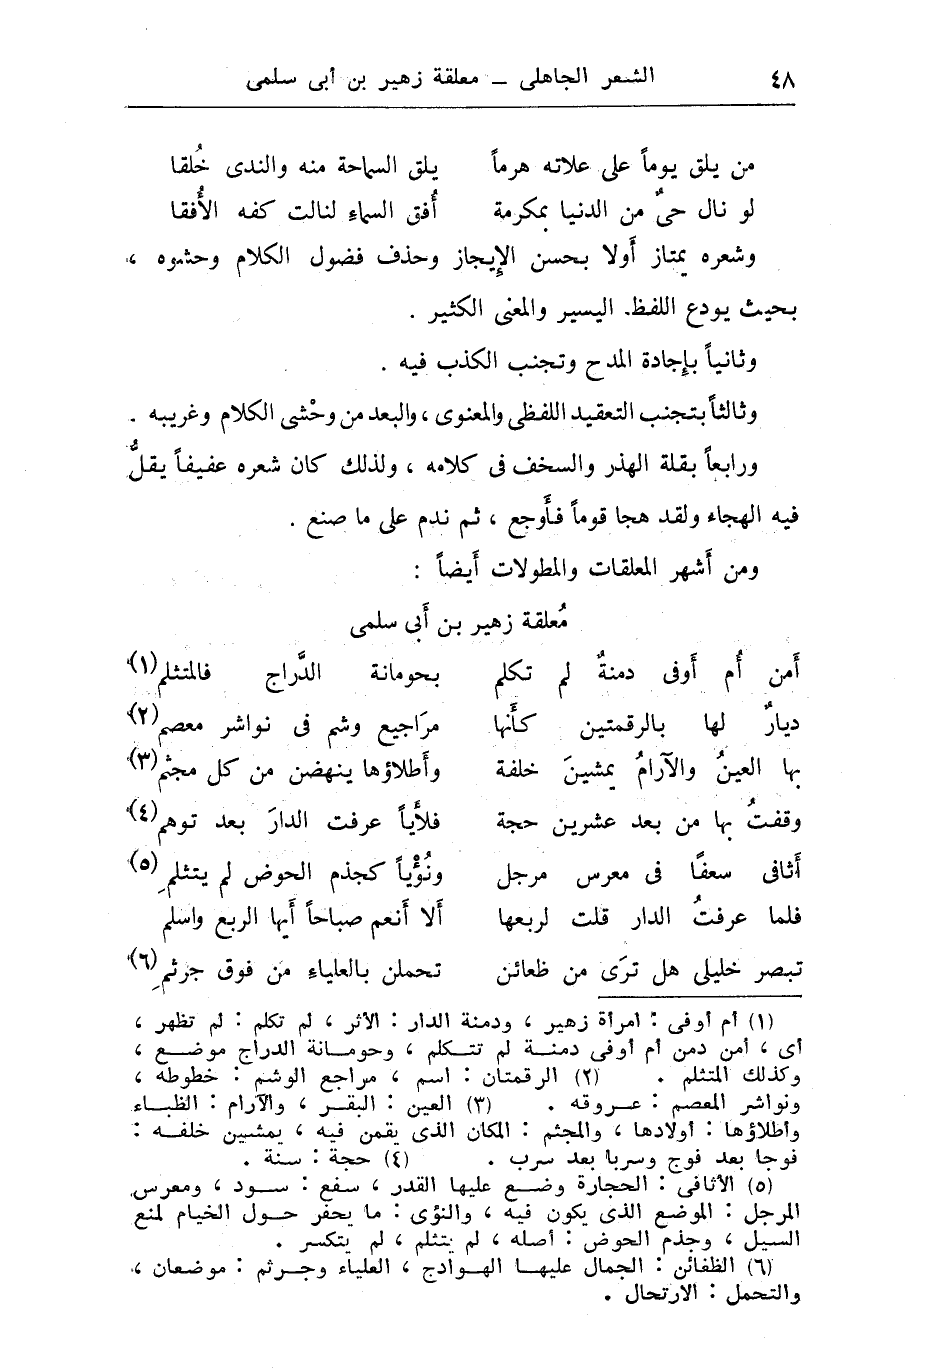 ٤٨ الشعر الجاهلى – معلقة زهير بن أبى سلمى
من يلق يوماً على علاته هرماً يلق السماحة منه والندى خُلقا
لو نال حىٌ من الدنيا بمكرمة أُفق السماء لنالت كفه الأُفقا
وشعره يمتاز أَولا بحسن الإِيجاز وحذف فضول الكلام وحشوه ،
بحيث يودع اللفظ اليسير والمعنى الكثير .
وثانياً بإِجادة المدح وتجنب الكذب فيه .
وثالثاً بتجنب التعقيد اللفظى والمعنوى ، والبعد من وحْشى الكلام وغريبه .
ورابعاً بقلة الهذر والسخف فى كلامه ، ولذلك كان شعره عفيفاً يقلُّ
فيه الهجاء ولقد هجا قوماً فأَوجع ، ثم ندم على ما صنع .
ومن أَشهر المعلقات والمطولات أَيضاً :
مُعلقة زهير بن أَبى سلمى
أَمن أُم أَوفى دمنةٌ لم تكلم بحومانة الدَّراج فالمتثلم(١)
ديارٌ لها بالرقمتين كأَنها مرَاجيع وشم فى نواشر معصم(٢)
بها العينُ والآرامُ يمشينَ خلفة وأَطلاؤها ينهضن من كل مجثم(٣)
وقفتُ بها من بعد عشرين حجة فلأْياً عرفت الدارَ بعد توهم(٤)
أَثافى سعفًا فى معرس مرجل ونُؤْياً كجذم الحوض لم يتثلمِ(٥)
فلما عرفتُ الدار قلت لربعها أَلا أَنعم صباحاً أَيها الربع واسلم
تبصر خليلى هل ترَى من ظعائن تحملن بالعلياء من فوق جرثمِ(٦)
(١) أم أوفى : امرأة زهير ، ودمنة الدار : الأثر ، لم تكلم : لم تظهر ،
أى ، أمن دمن أم أوفى دمنة لم تتكلم ، وحومانة الدراج موضع ،
وكذلك المتثلم . (٢) الرقمتان : اسم ، مراجع الوشم : خطوطه ،
ونواشر المعصم : عروقه . (٣) العين : البقر ، والآرام : الظباء
وأطلاؤها : أولادها ، والمجثم : المكان الذى يقمن فيه ، يمشين خلفه :
فوجا بعد فوج وسربا بعد سرب . (٤) حجة : سنة .
(٥) الأثافى : الحجارة وضع عليها القدر ، سفع : سود ، ومعرس
المرجل : الموضع الذى يكون فيه ، والنؤى : ما يحفر حول الخيام لمنع
السيل ، وجذم الحوض : أصله ، لم يتثلم ، لم يتكسر .
(٦) الظفائن : الجمال عليها الهوادج ، العلياء وجرثم : موضعان ،
والتحمل : الارتحال .